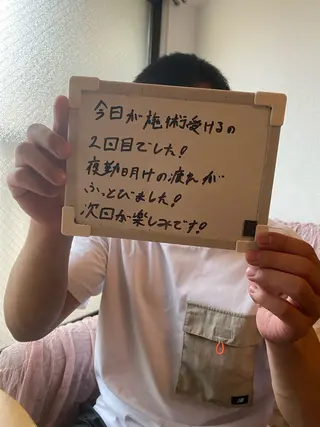 今日が施術受けるの
2回目でした!
夜勤明けの疲れが
ふっとびました!
次回が楽しみです!